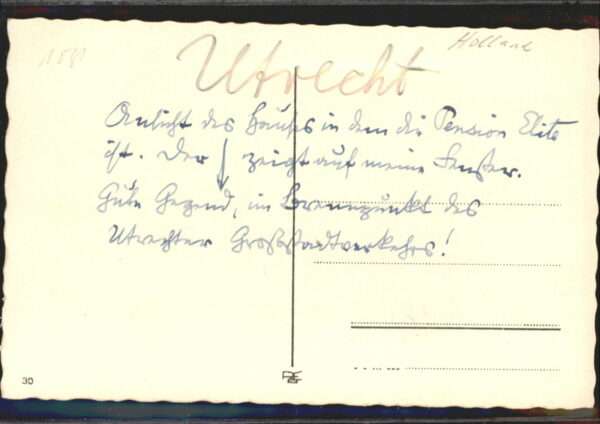 Holland
Utrecht
Ansicht des Hauses in dem die Pension Elite
ist. Der ↓ zeigt auf meine Fenster.
Gute Gegend, im Brennpunkt des
Utrechter Großstadtverkehrs!
30